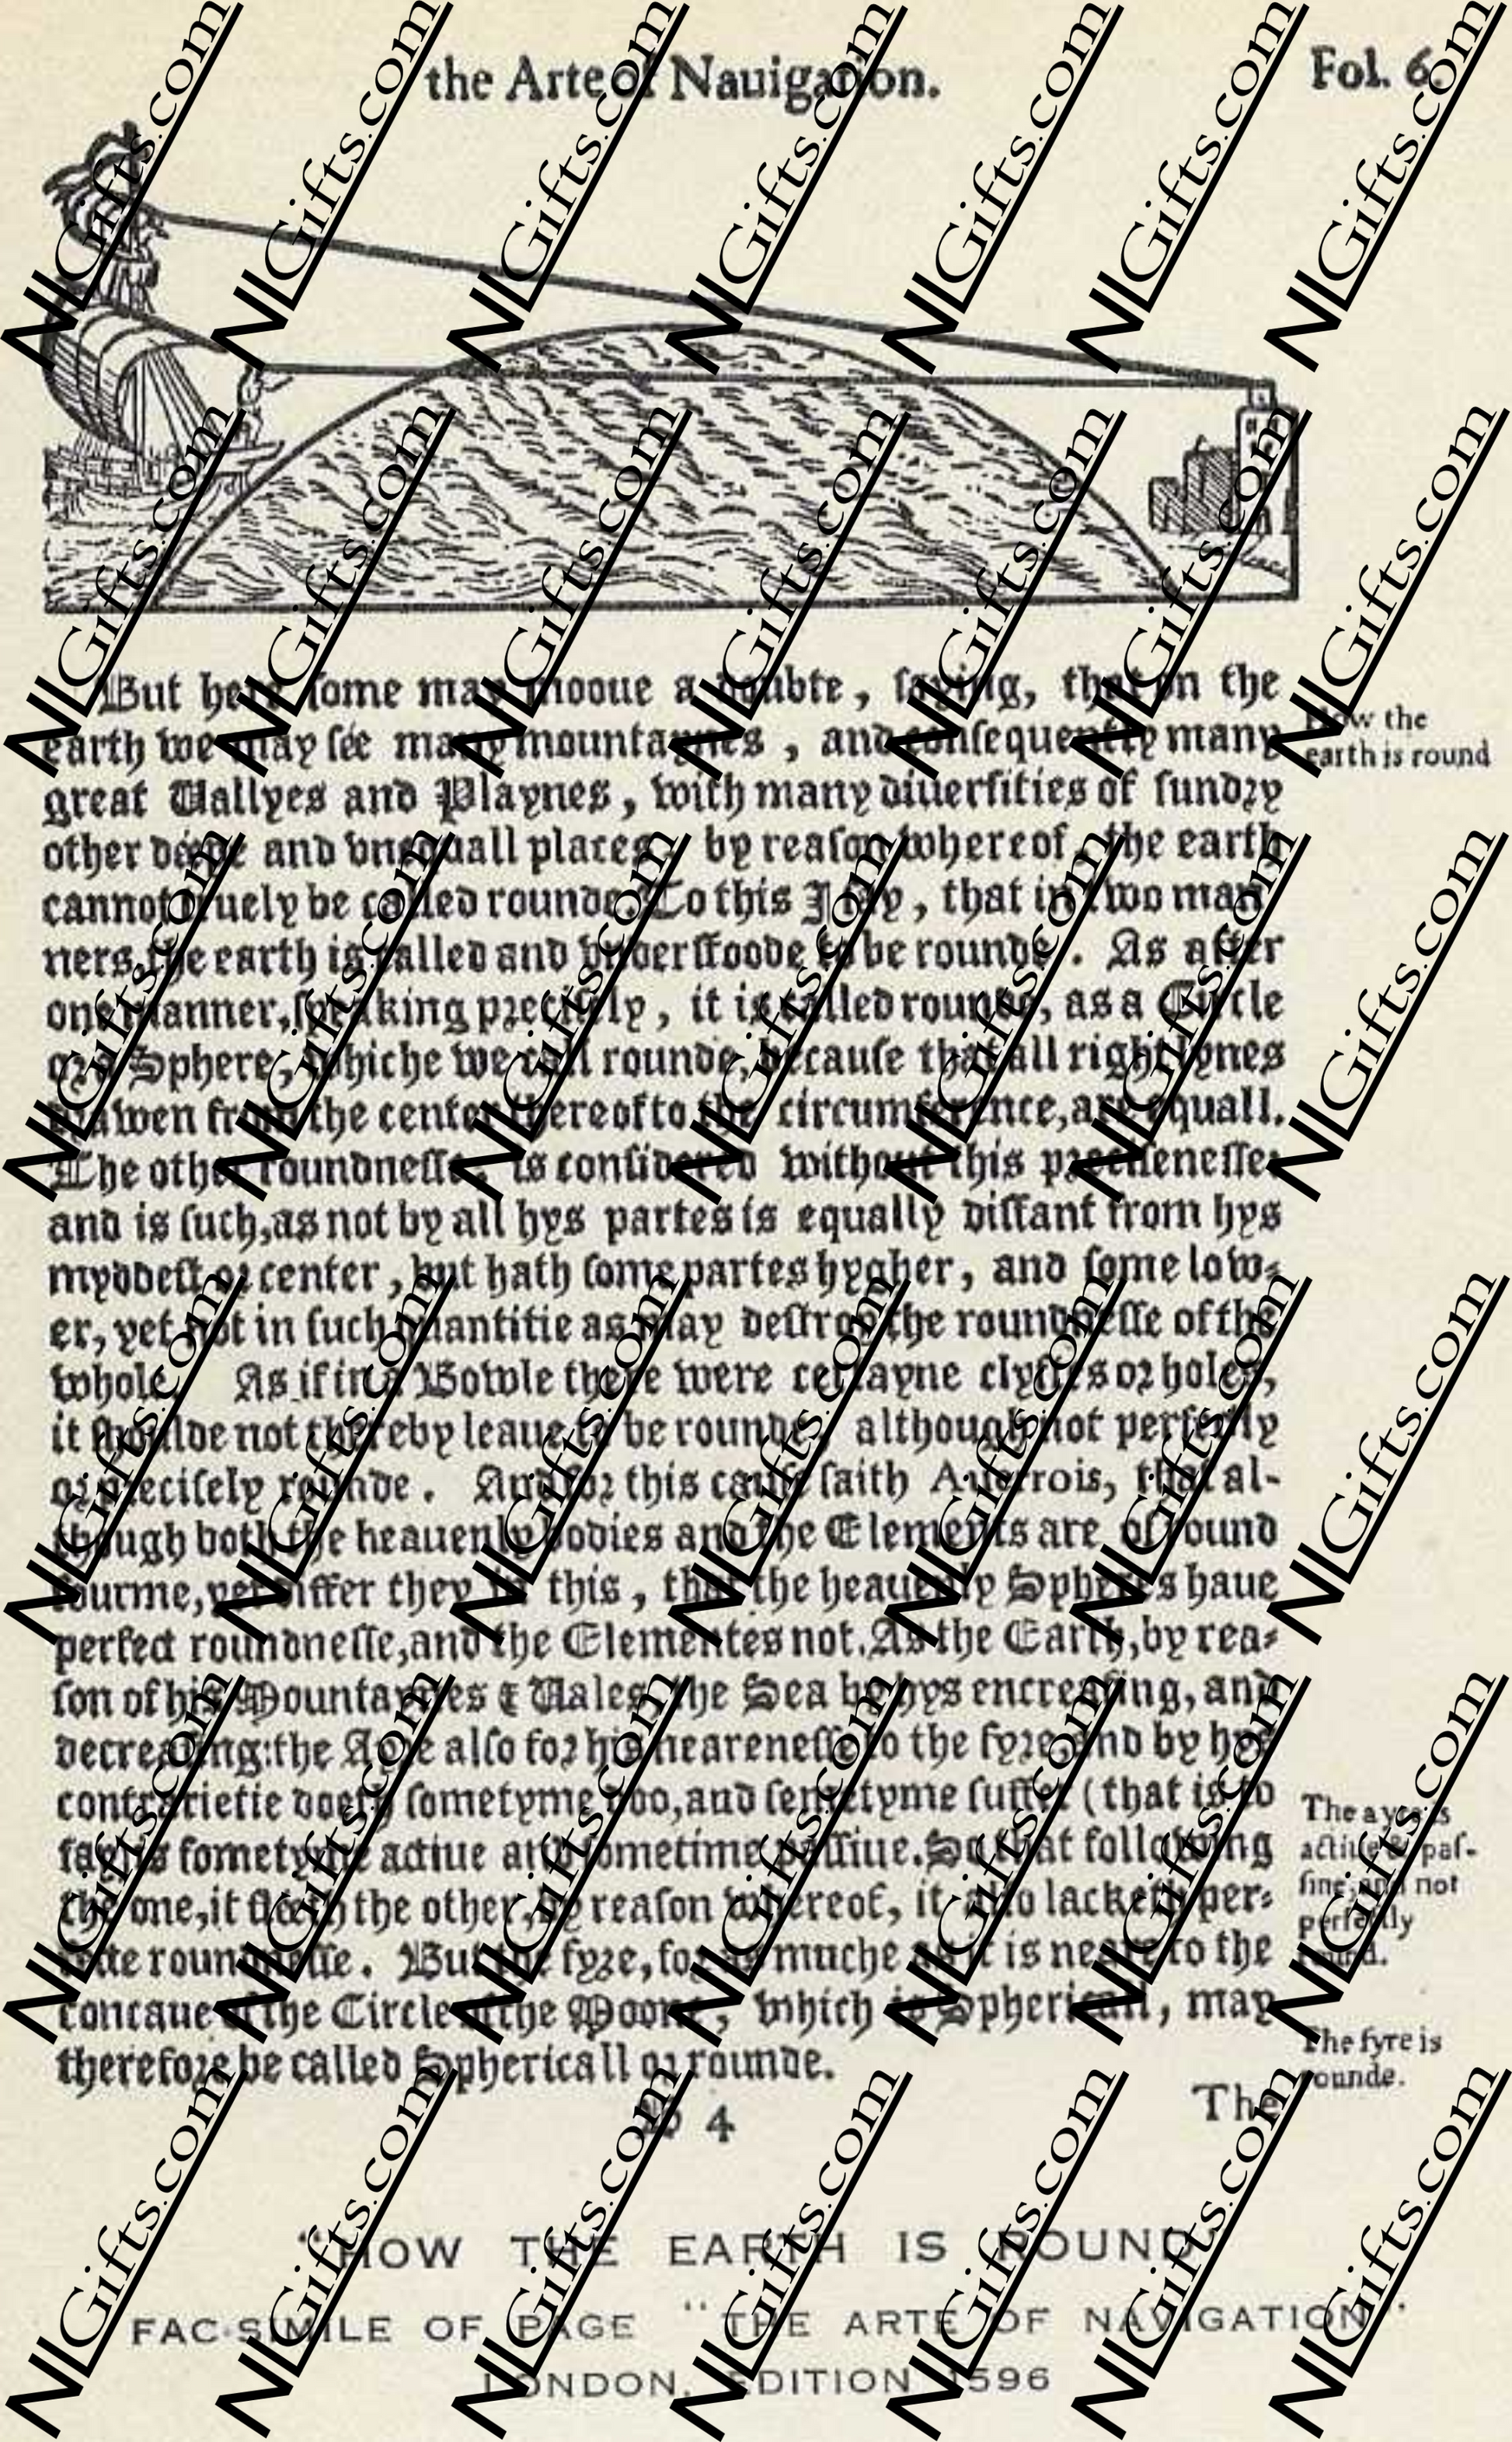 the Arte of Nauigation.
Fol. 6.
But here some may mooue a doubte, saying, that on the
earth we may sée many mountaynes, and consequently many
great Vallyes and Playnes, with many diuersities of sundry
other déepe and vnequall places, by reason whereof, the earth
cannot truely be called rounde. To this I say, that in two man-
ners the earth is called and vnderstoode to be rounde. As after
one manner, speaking precisely, it is called rounde, as a Circle
or a Sphere, whiche we call rounde, because that all right lynes
drawen from the center thereof to the circumference, are equall.
The other roundnesse, is considered without this precisenesse:
and is such, as not by all hys partes is equally distant from hys
myddest or center, but hath some partes hygher, and some low-
er, yet not in such quantitie as may destroy the roundnesse of the
whole. As if in a Bowle there were certayne clyftes or holes,
it shoulde not thereby leaue to be rounde, although not perfectly
or precisely rounde. And for this cause saith Auerrois, that al-
though both the heauenly bodies and the Elements are of round
fourme, yet differ they in this, that the heauenly Spheres haue
perfect roundnesse, and the Elementes not. As the Earth, by rea-
son of his Mountaynes & Vales, the Sea by hys encreasing, and
decreasing: the Ayre also for his nearenesse to the fyre, and by hys
contrarietie doeth sometyme doo, and sometyme suffer (that is to
say) is sometyme actiue and sometime passiue. So that following
the one, it fleeth the other, by reason whereof, it also lacketh per-
fecte roundnesse. But the fyre, for as muche as it is neare to the
concaue of the Circle of the Moone, which is Sphericall, may
therefore be called Sphericall or rounde.
How the
earth is round
The ayre is
actiue & pas-
siue, and not
perfectly
round.
The fyre is
rounde.
B 4
The
"HOW THE EARTH IS ROUND"
FAC-SIMILE OF PAGE "THE ARTE OF NAVIGATION"
LONDON, EDITION 1596
NLGifts.com